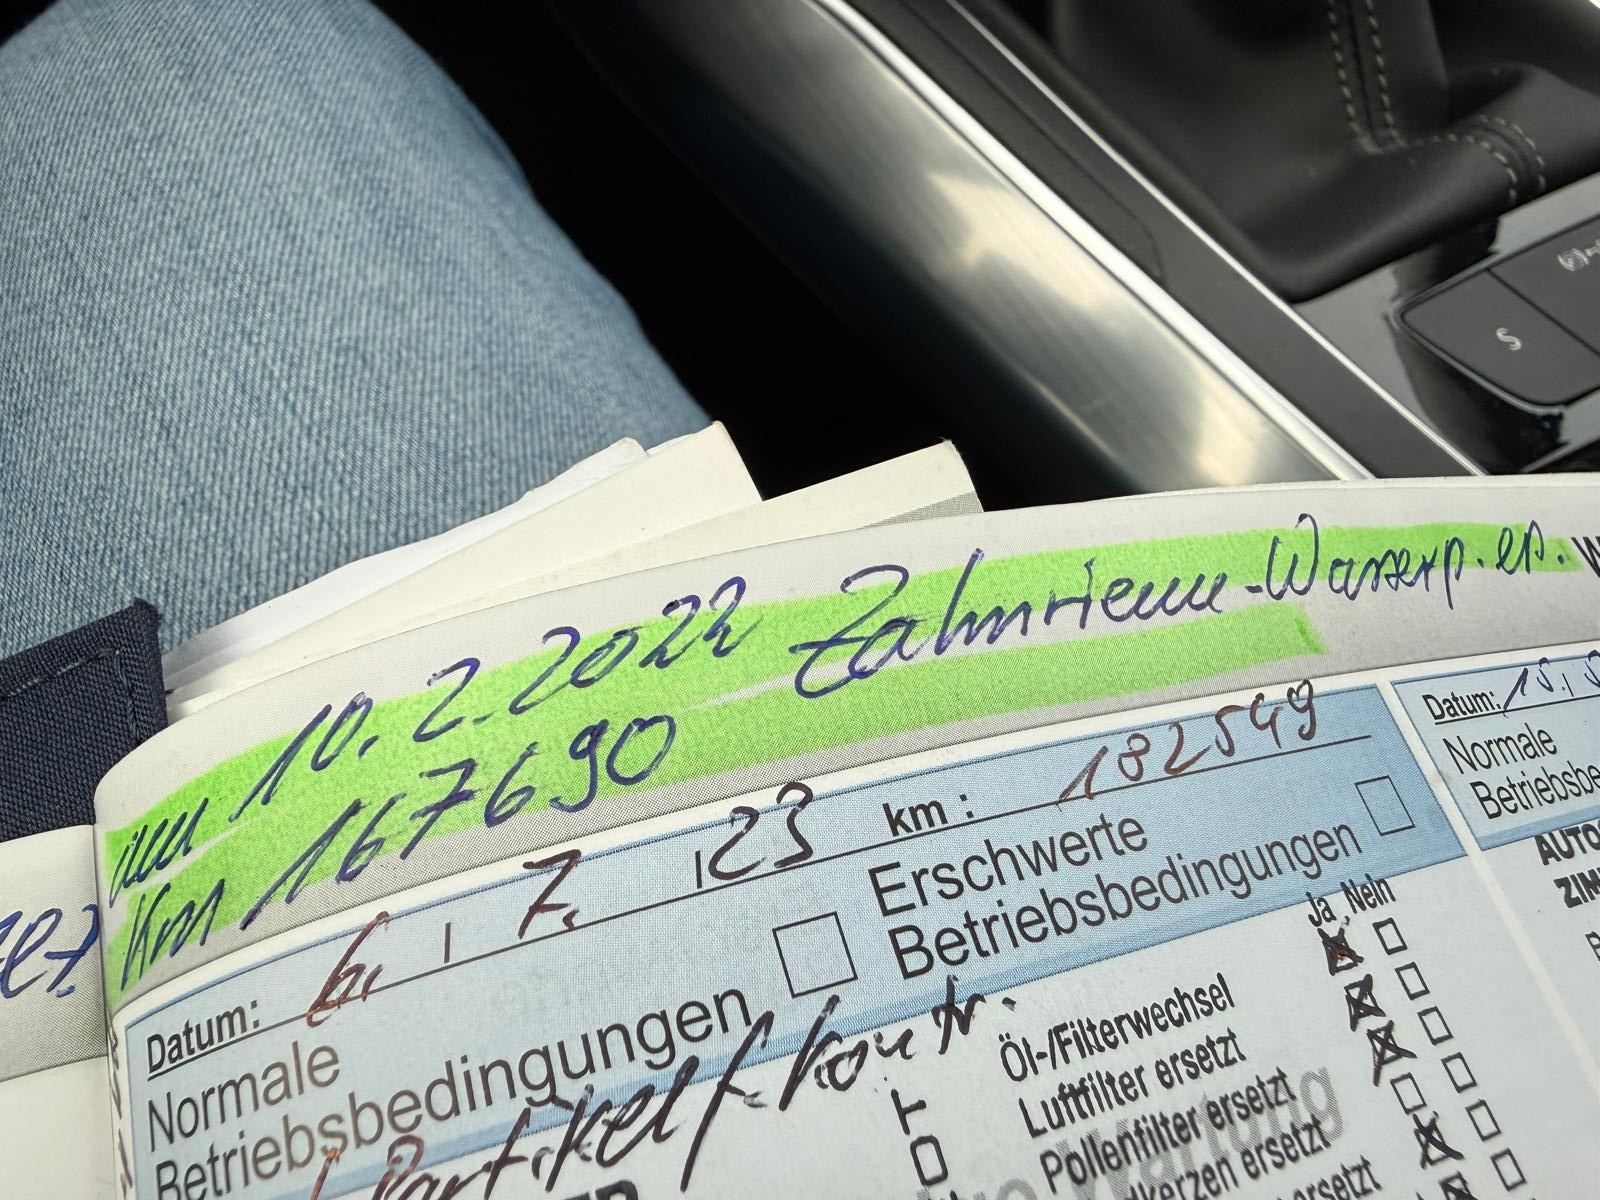 10.2.2022 Zahnriemen-Wasserp. er.
Km 167690
Datum: 6. 7. 23 km: 182549
Normale
Betriebsbedingungen
Erschwerte
Betriebsbedingungen
Partikelf. kontr.
Ja Nein
Öl-/Filterwechsel
Luftfilter ersetzt
Pollenfilter ersetzt
kerzen ersetzt
ersetzt
Datum: 15.
Normale
Betriebsbe
AUTO
S